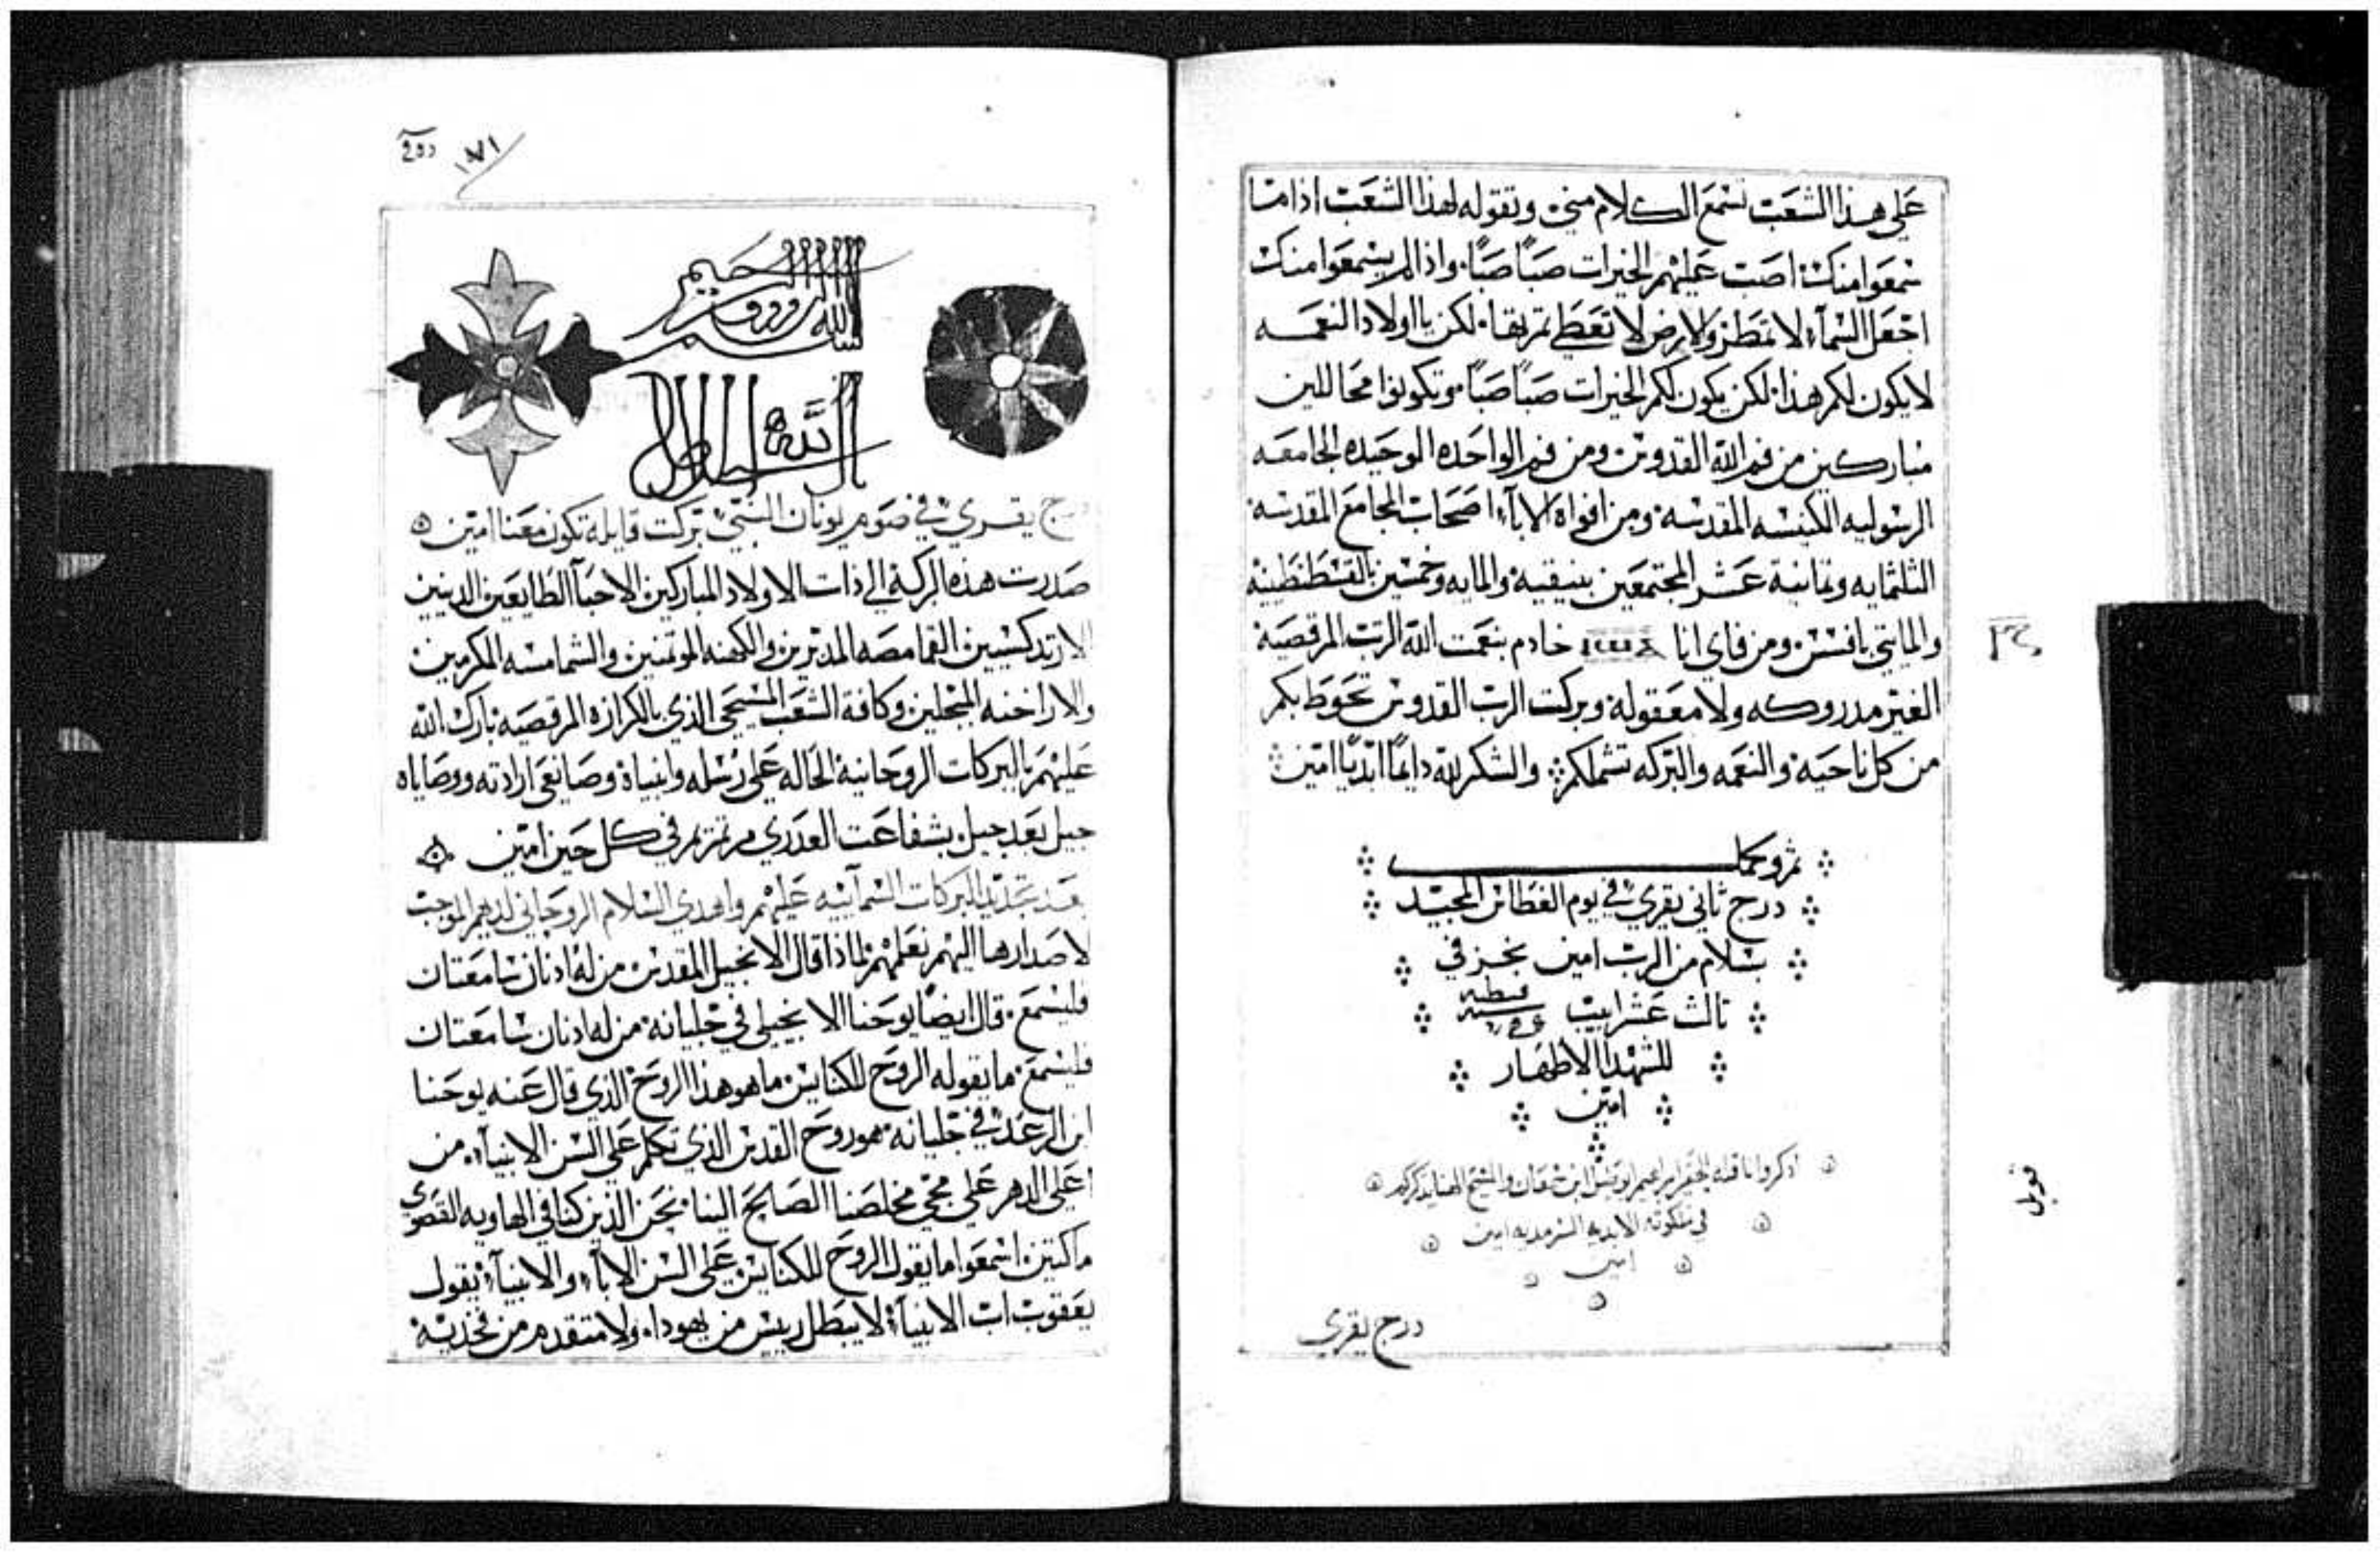 على هذا الشعب تسمع الكلام مني وتقوله لهذا الشعب اذا ما
سمعوا منك اصب عليهم الخيرات صبًا صبًا. واذا لم يسمعوا منك
اجعل السماء لا تمطر والارض لا تعطي ثمرتها. لكن يا اولاد النعمه
لا يكون لكم هذا. لكن يكون لكم الخيرات صبًا صبًا وتكونوا محاللين
مباركين من فم الله القدوس ومن فم الواحده الوحيده الجامعه
الرسوليه الكنيسه المقدسه ومن افواه الاباء اصحاب المجامع المقدسه
الثلثمايه وثمانية عشر المجتمعين بنيقية والمايه وخمسين بالقسطنطينية
والمايتي بافسس ومن فاي انا خادم بنعمت الله الرتب المرقصية
الغير مدروكه ولا معقوله وبركت الرب القدوس تحوط بكم
من كل ناحية والنعمه والبركه تشملكم والشكر لله دايمًا ابديًا امين
درج ثاني يقري في يوم الغطاس المجيد
بسلام من الرب امين نجز في
ثالث عشر ابيب قبطيه سنه
للشهدا الاطهار
امين
في ملكوته الابديه السرمديه امين
امين
درج يقري
قوبل
١٧١
بسم الله الرووف الرحيم
درج يقري في صوم يونان النبي بركت قايله تكون معنا امين
صدرت هذه البركة الي ذات الاولاد المباركين الاحبآ الطايعين الدينين
الارتدكسيين القمامصه المدبرين والكهنه الموتمنين والشمامسه المكرمين
والاراخنه المبجلين وكافة الشعب المسيحي الذي بالكرازه المرقصيه بارك الله
عليهم بالبركات الروحانية الحاله علي رسله وانبياه وصانعي ارادته ووصاياه
جيل بعد جيل بشفاعت العدري مرتمريم في كل حين امين
بعد تجديد البركات السمآييه عليهم واهدي السلام الروحاني لديهم الموجب
لاصدارها اليهم نعلمهم لماذا قال الانجيل المقدس من له اذنان سامعتان
فليسمع. قال ايضًا يوحنا الانجيلي في جليانه من له اذنان سامعتان
فليسمع. ما يقوله الروح للكنايس. ما هو هذا الروح الذي قال عنه يوحنا
ابن الرعد في جليانه هو روح القدس الذي تكلم علي السن الانبيآ. من
اعلي الدهر علي مجي مخلصنا الصالح الينا. نحن الذين كنا في الهاويه القصوي
ماكثين. اسمعوا ما يقول الروح للكنايس علي السن الابآ والانبيآ. يقول
يعقوب اب الانبيآ لا يبطل رييس من يهودا. ولا متقدم من فخذيه